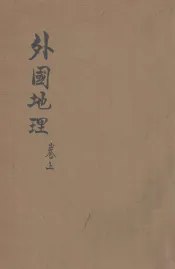 外國地理
卷上